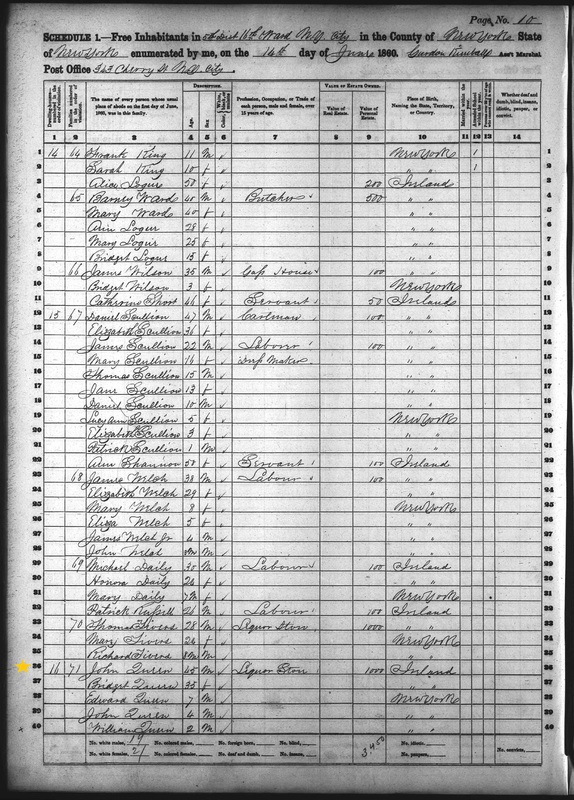 Page No. 10
SCHEDULE 1.—Free Inhabitants in 5th Dist 16th Ward N.Y. City in the County of New York State
of New York enumerated by me, on the 14th day of June 1860. Gurdon Ass't Marshal.
Post Office 343 Cherry St. N.Y. City.
Dwelling-houses numbered in the order of visitation.
Families numbered in the order of visitation.
The name of every person whose usual place of abode on the first day of June, 1860, was in this family.
DESCRIPTION.
Age.
Sex.
Profession, Occupation, or Trade of each person, male and female, over 15 years of age.
VALUE OF ESTATE OWNED.
Value of Real Estate.
Value of Personal Estate.
Place of Birth, Naming the State, Territory, or Country.
Married within the year.
Whether deaf and dumb, blind, insane, idiotic, pauper, or convict.
1 2 3 4 5 6 7 8 9 10 11 12 13 14
1 14 64 Frank King 11 M New York 1
2 Sarah King 10 f " " 1
3 Alice Logue 50 f 200 Ireland
4 65 Barney Wards 40 M Butcher 500 " "
5 Mary Wards 40 f " "
6 Ann Logue 28 f " "
7 Mary Logue 25 f " "
8 Bridget Logue 15 f " "
9 66 James Wilson 35 M House 100 " "
10 Bridget Wilson 3 f New York
11 Catherine Short 46 f Servant 50 Ireland
12 15 67 Daniel Scullion 47 M Cartman 100 " "
13 Elizabeth Scullion 36 f " "
14 James Scullion 22 M Labour 100 " "
15 Mary Scullion 16 f Maker " "
16 Thomas Scullion 15 M " "
17 Jane Scullion 13 f " "
18 Daniel Scullion 10 M " "
19 Lucy Ann Scullion 5 f New York
20 Elizabeth Scullion 3 f " "
21 Patrick Scullion 1 M " "
22 Ann Shannon 50 f Servant 100 Ireland
23 68 James Welch 38 M Labour 100 " "
24 Elizabeth Welch 29 f " "
25 Mary Welch 8 f New York
26 Eliza Welch 5 f " "
27 James Welch Jr 4 M " "
28 John Welch M " "
29 69 Michael Daily 30 M Labour 100 Ireland
30 Honora Daily 24 f " "
31 Mary Daily f New York
32 Patrick Russell M Labour 100 Ireland
33 70 Thomas 28 M Liquor Store 1000 " "
34 Mary 24 f New York
35 Richard M " "
36 16 71 John Queen 45 M Liquor Store 1000 Ireland
37 Bridget Queen 35 f " "
38 Edward Queen 7 M New York
39 John Queen 4 M " "
40 William Queen 2 M " "
No. white males, 19 No. colored males, No. foreign born, No. blind, 3,450 No. idiotic, No. convicts,
No. white females, 21 No. colored females, No. deaf and dumb, No. insane, No. paupers,